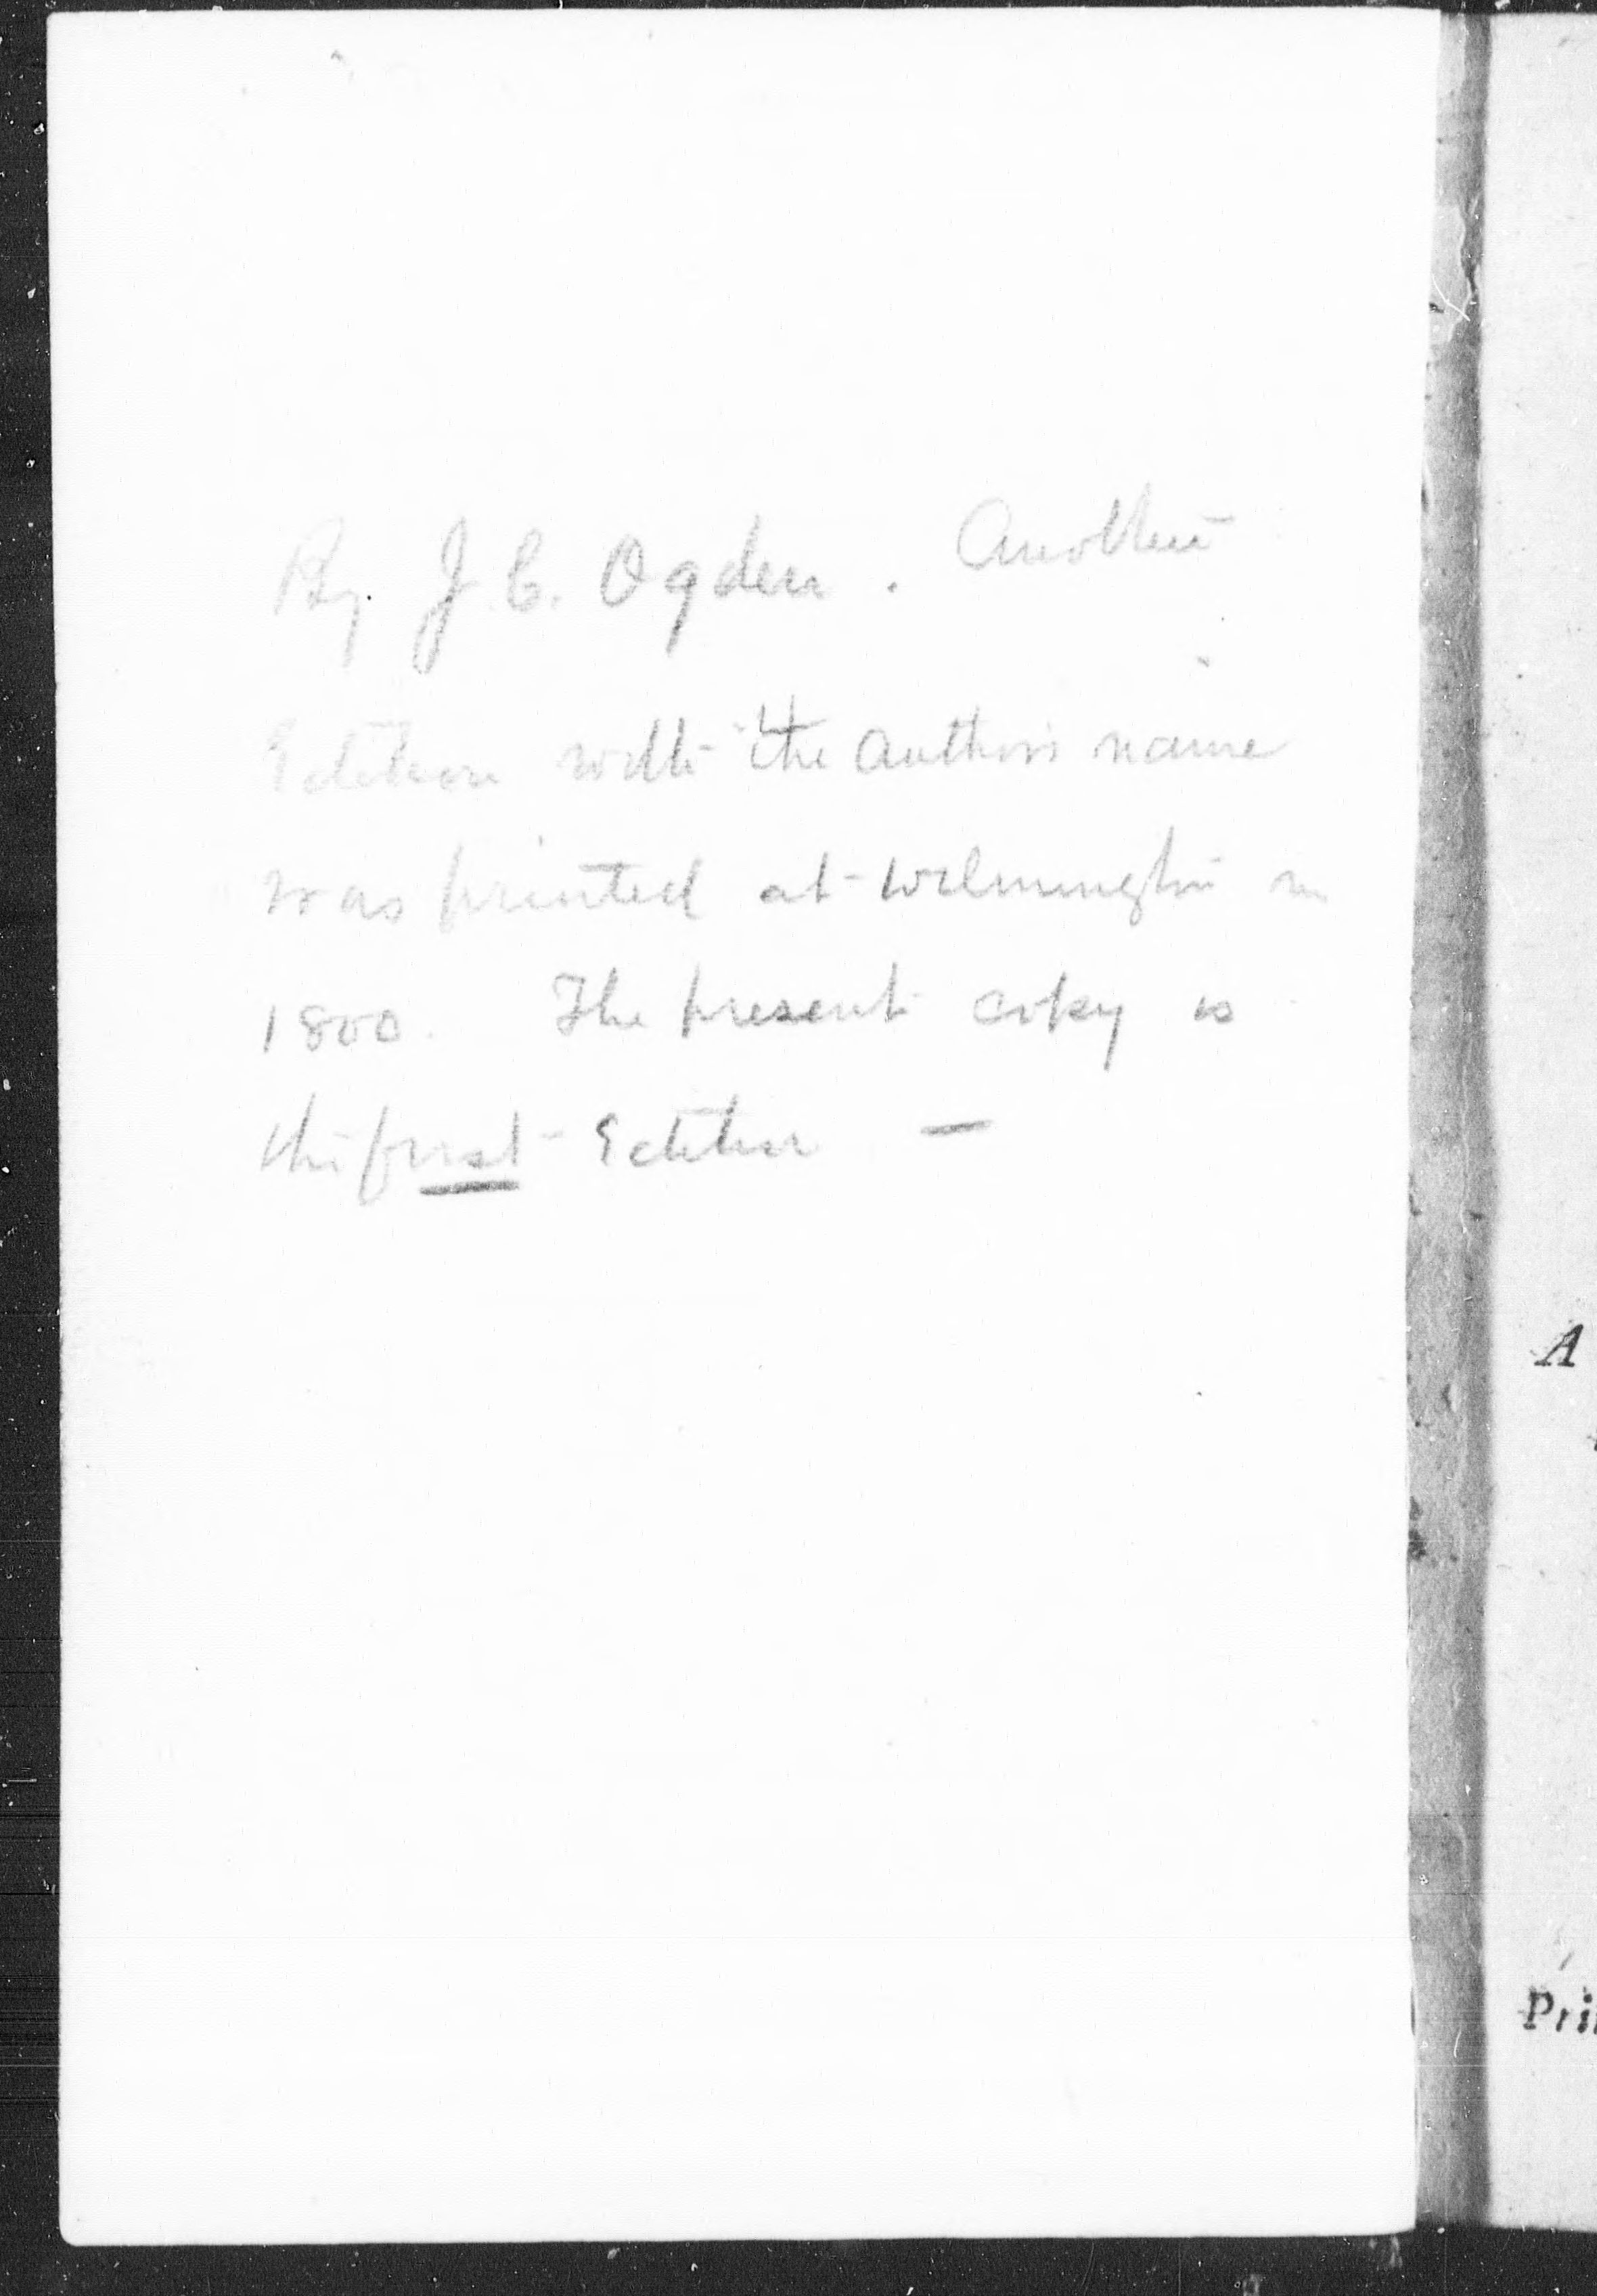 By J. C. Ogden. Another
Edition with the Author's name
was printed at Wilmington in
1800. The present copy is
the first Edition —
A
Pri